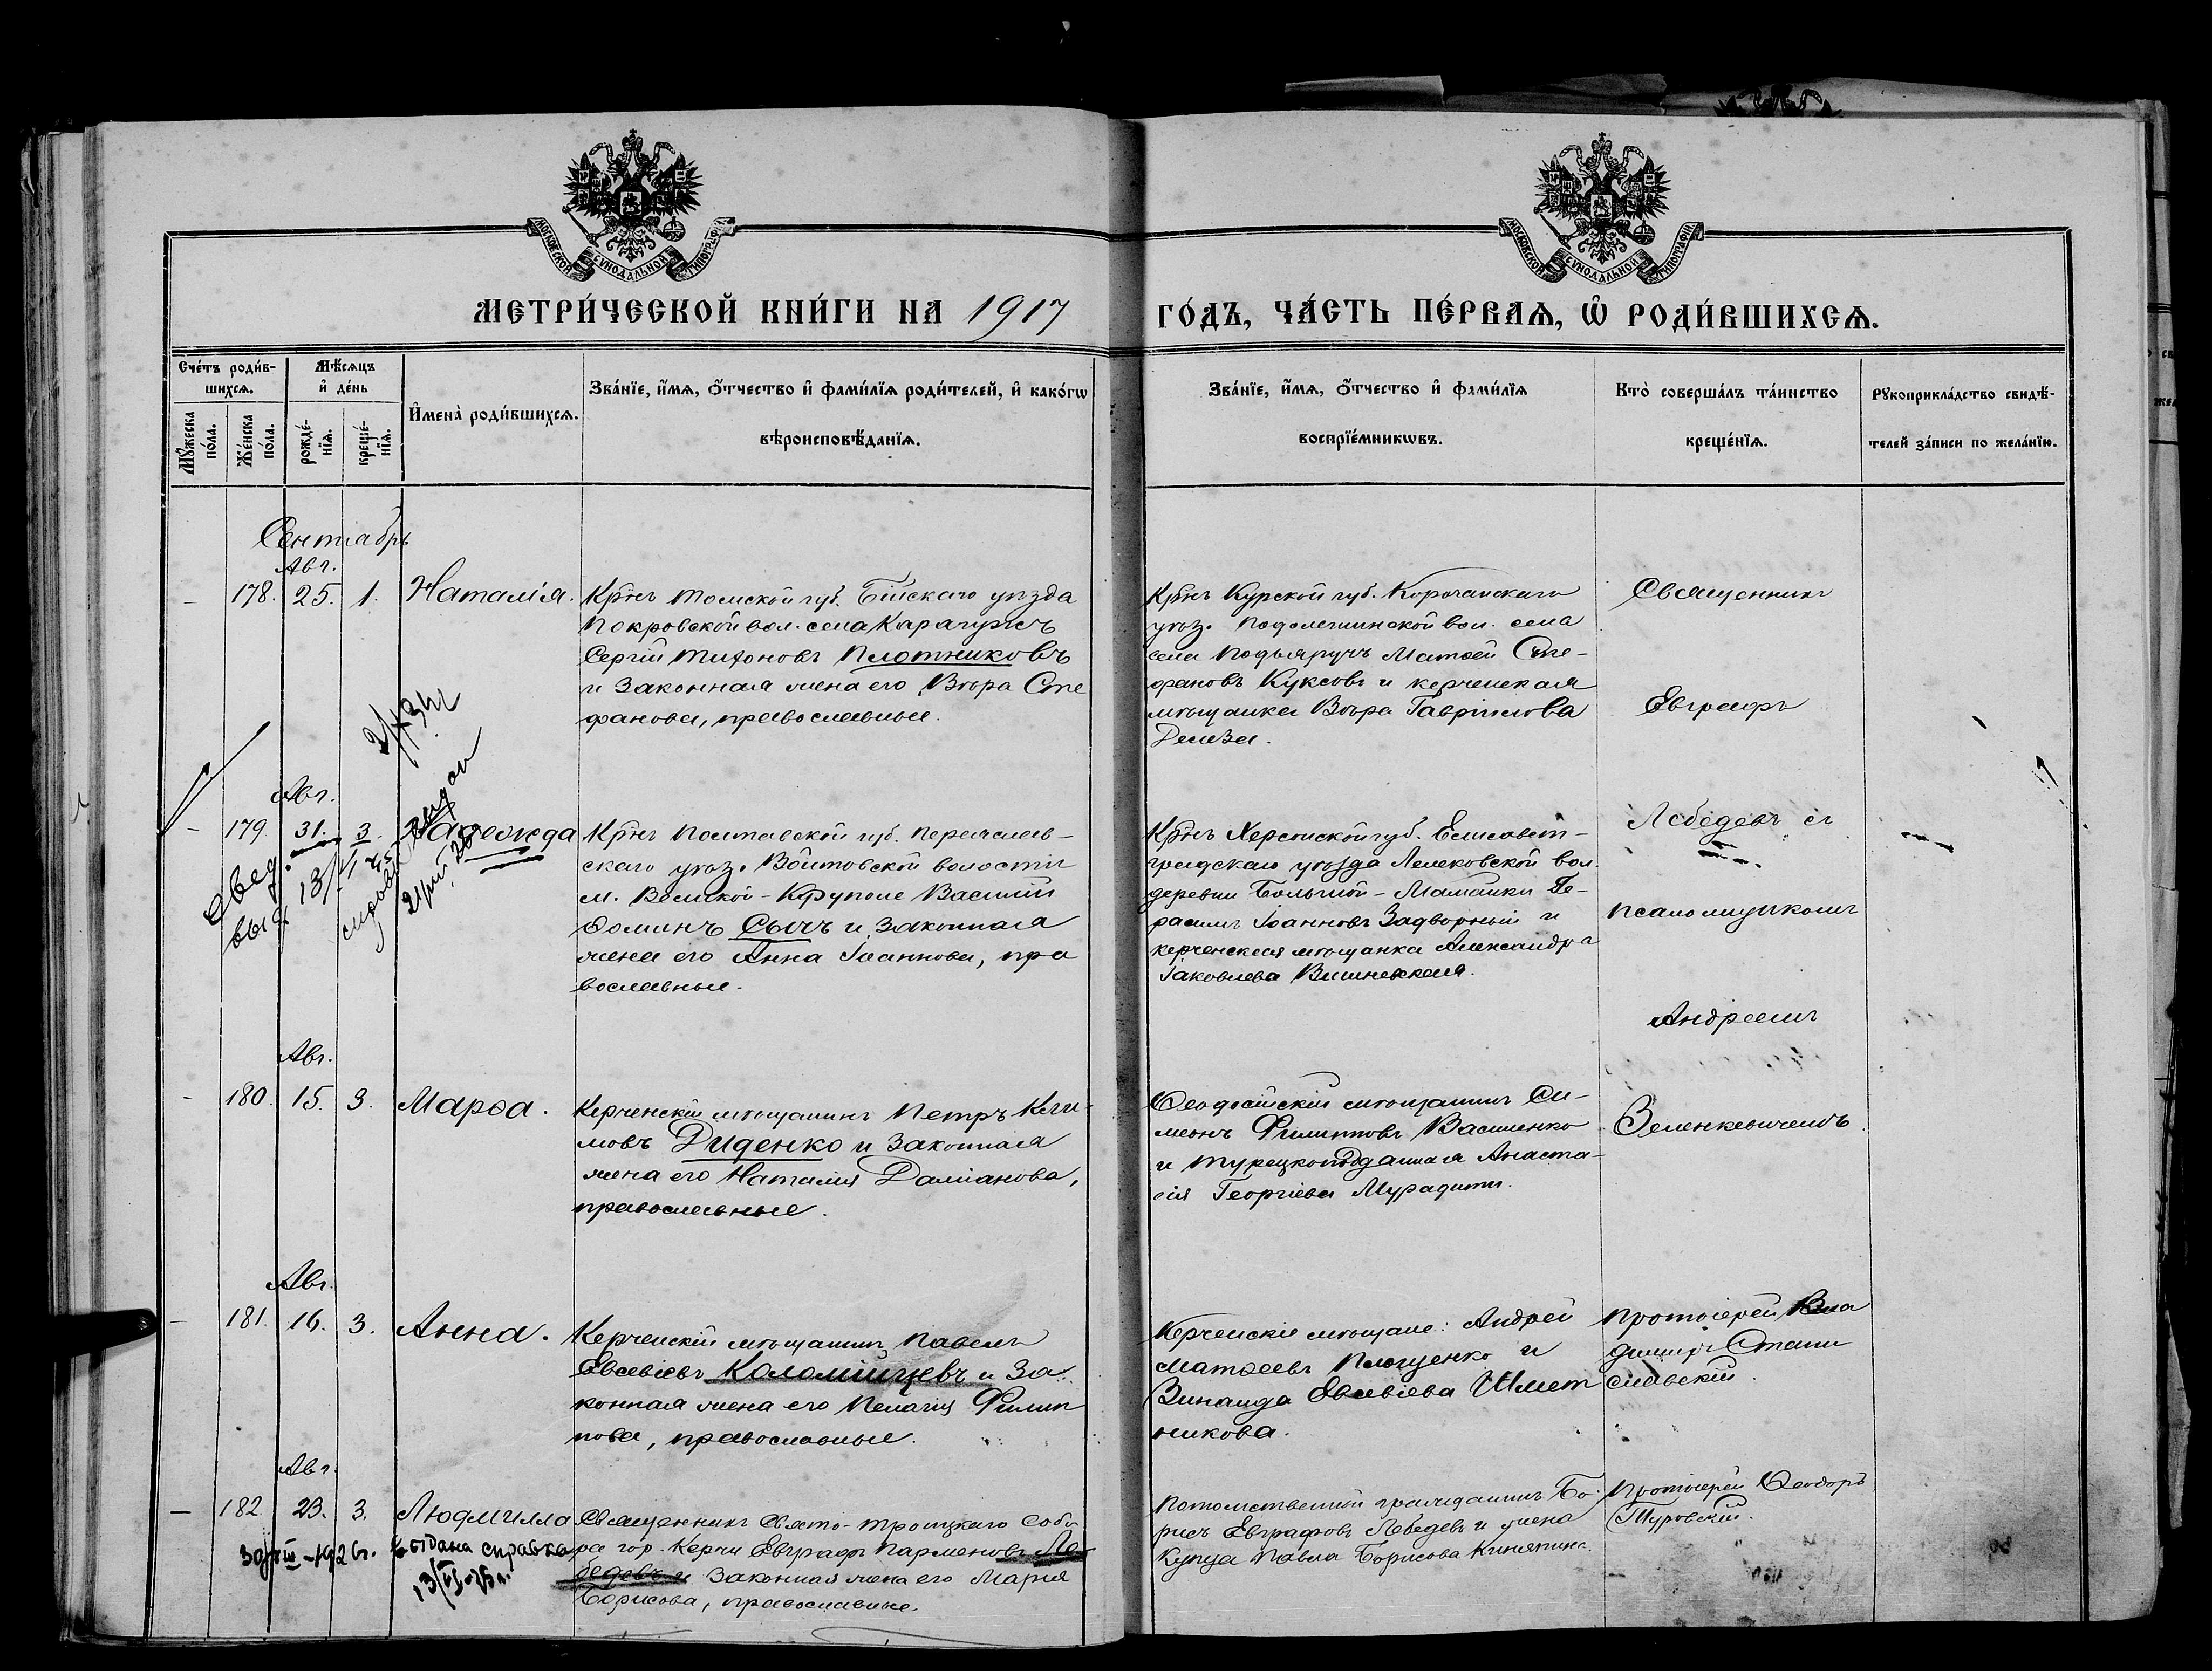 МОСКОВСКОЙ СѴНОДАЛЬНОЙ ТИПОГРАФІИ
МОСКОВСКОЙ СѴНОДАЛЬНОЙ ТИПОГРАФІИ
МЕТРИ́ЧЕСКОЙ КНИ́ГИ НА 1917 ГО́ДЪ, ЧА́СТЬ ПЕ́РВАѦ, Ѽ РОДИ́ВШИХСѦ.
Сче́тъ роди́в-
шихсѧ.
Мꙋ́жеска
по́ла.
Же́нска
по́ла.
Мѣ́сѧцъ
и҆ де́нь
рожде́-
нїѧ.
креще́-
нїѧ.
И҆мена̀ роди́вшихсѧ.
Зва́нїе, и҆́мѧ, ѻ҆́тчество и҆ фами́лїѧ роди́телей, и҆ како́гѡ
вѣроисповѣ́данїѧ.
Зва́нїе, и҆́мѧ, ѻ҆́тчество и҆ фами́лїѧ
воспрїе́мникѡвъ.
Кто̀ соверша́лъ та́инство
креще́нїѧ.
Рꙋкоприкла́дство свидѣ́-
телей за́писи по жела́нїю.
Сентябрь
Авг.
– 178. 25. 1. Наталія.
Крн҃ъ Томской губ. Бійскаго уѣзда
Покровской вол. села Карагужъ
Сергій Тихоновъ Плотниковъ
и законная жена его Вѣра Сте
фанова, православные.
Крн҃ъ Курской губ. Корочанскаго
уѣз. вол. села
села Матѳей Сте-
фановъ Куксовъ и керченская
мѣщанка Вѣра Гавріилова
Священникъ
Евграфъ
Авг.
– 179. 31. 3. Надежда
Свед.
выд.
Крн҃ъ Полтавской губ. Переяслав-
скаго уѣз. Войтовской волости
м. Великой-Круполе Василій
Ѳоминъ Сычъ и законная
жена его Анна Іоаннова, пра
вославные.
Крн҃ъ Херсонской губ. Елисавет-
градскаго уѣзда Лелековской вол.
деревни Большой-Мамайки Ге-
расимъ Іоанновъ Задворный и
керченская мѣщанка Александра
Іаковлева Вишневская.
Лебедевъ съ
псаломщикомъ
Андреемъ
Авг.
– 180. 15. 3. Марѳа.
Керченскій мѣщанинъ Петръ Кли-
мовъ Диденко и законная
жена его Наталія Даміанова,
православные.
Ѳеодосійскій мѣщанинъ Си-
меонъ Филипповъ Василенко
и турецкоподданная Анаста-
сія Георгіева
Зеленкевичемъ.
Авг.
– 181. 16. 3. Анна.
Керченскій мѣщанинъ Павелъ
Евсевіевъ Коломійцевъ и за-
конная жена его Пелагія Филип
пова, православные.
Керченскіе мѣщане: Андрей
Матѳеевъ Плющенко и
Зинаида Евсевіева Шмет
никова.
Протоіерей Вла
диміръ Стани
славскій.
Авг.
– 182 23. 3. Людмилла
30/VIII-1926г. выдана справка
Священникъ Свято-Троицкаго Собо
ра гор. Керчи Евграфъ Парменовъ Ле-
бедевъ и законная жена его Марія
Борисова, православные.
Потомственный гражданинъ Бо-
рисъ Евграфовъ Лебедевъ и жена
купца Павла Борисова
Протоіерей Ѳеодоръ
Туровскій.